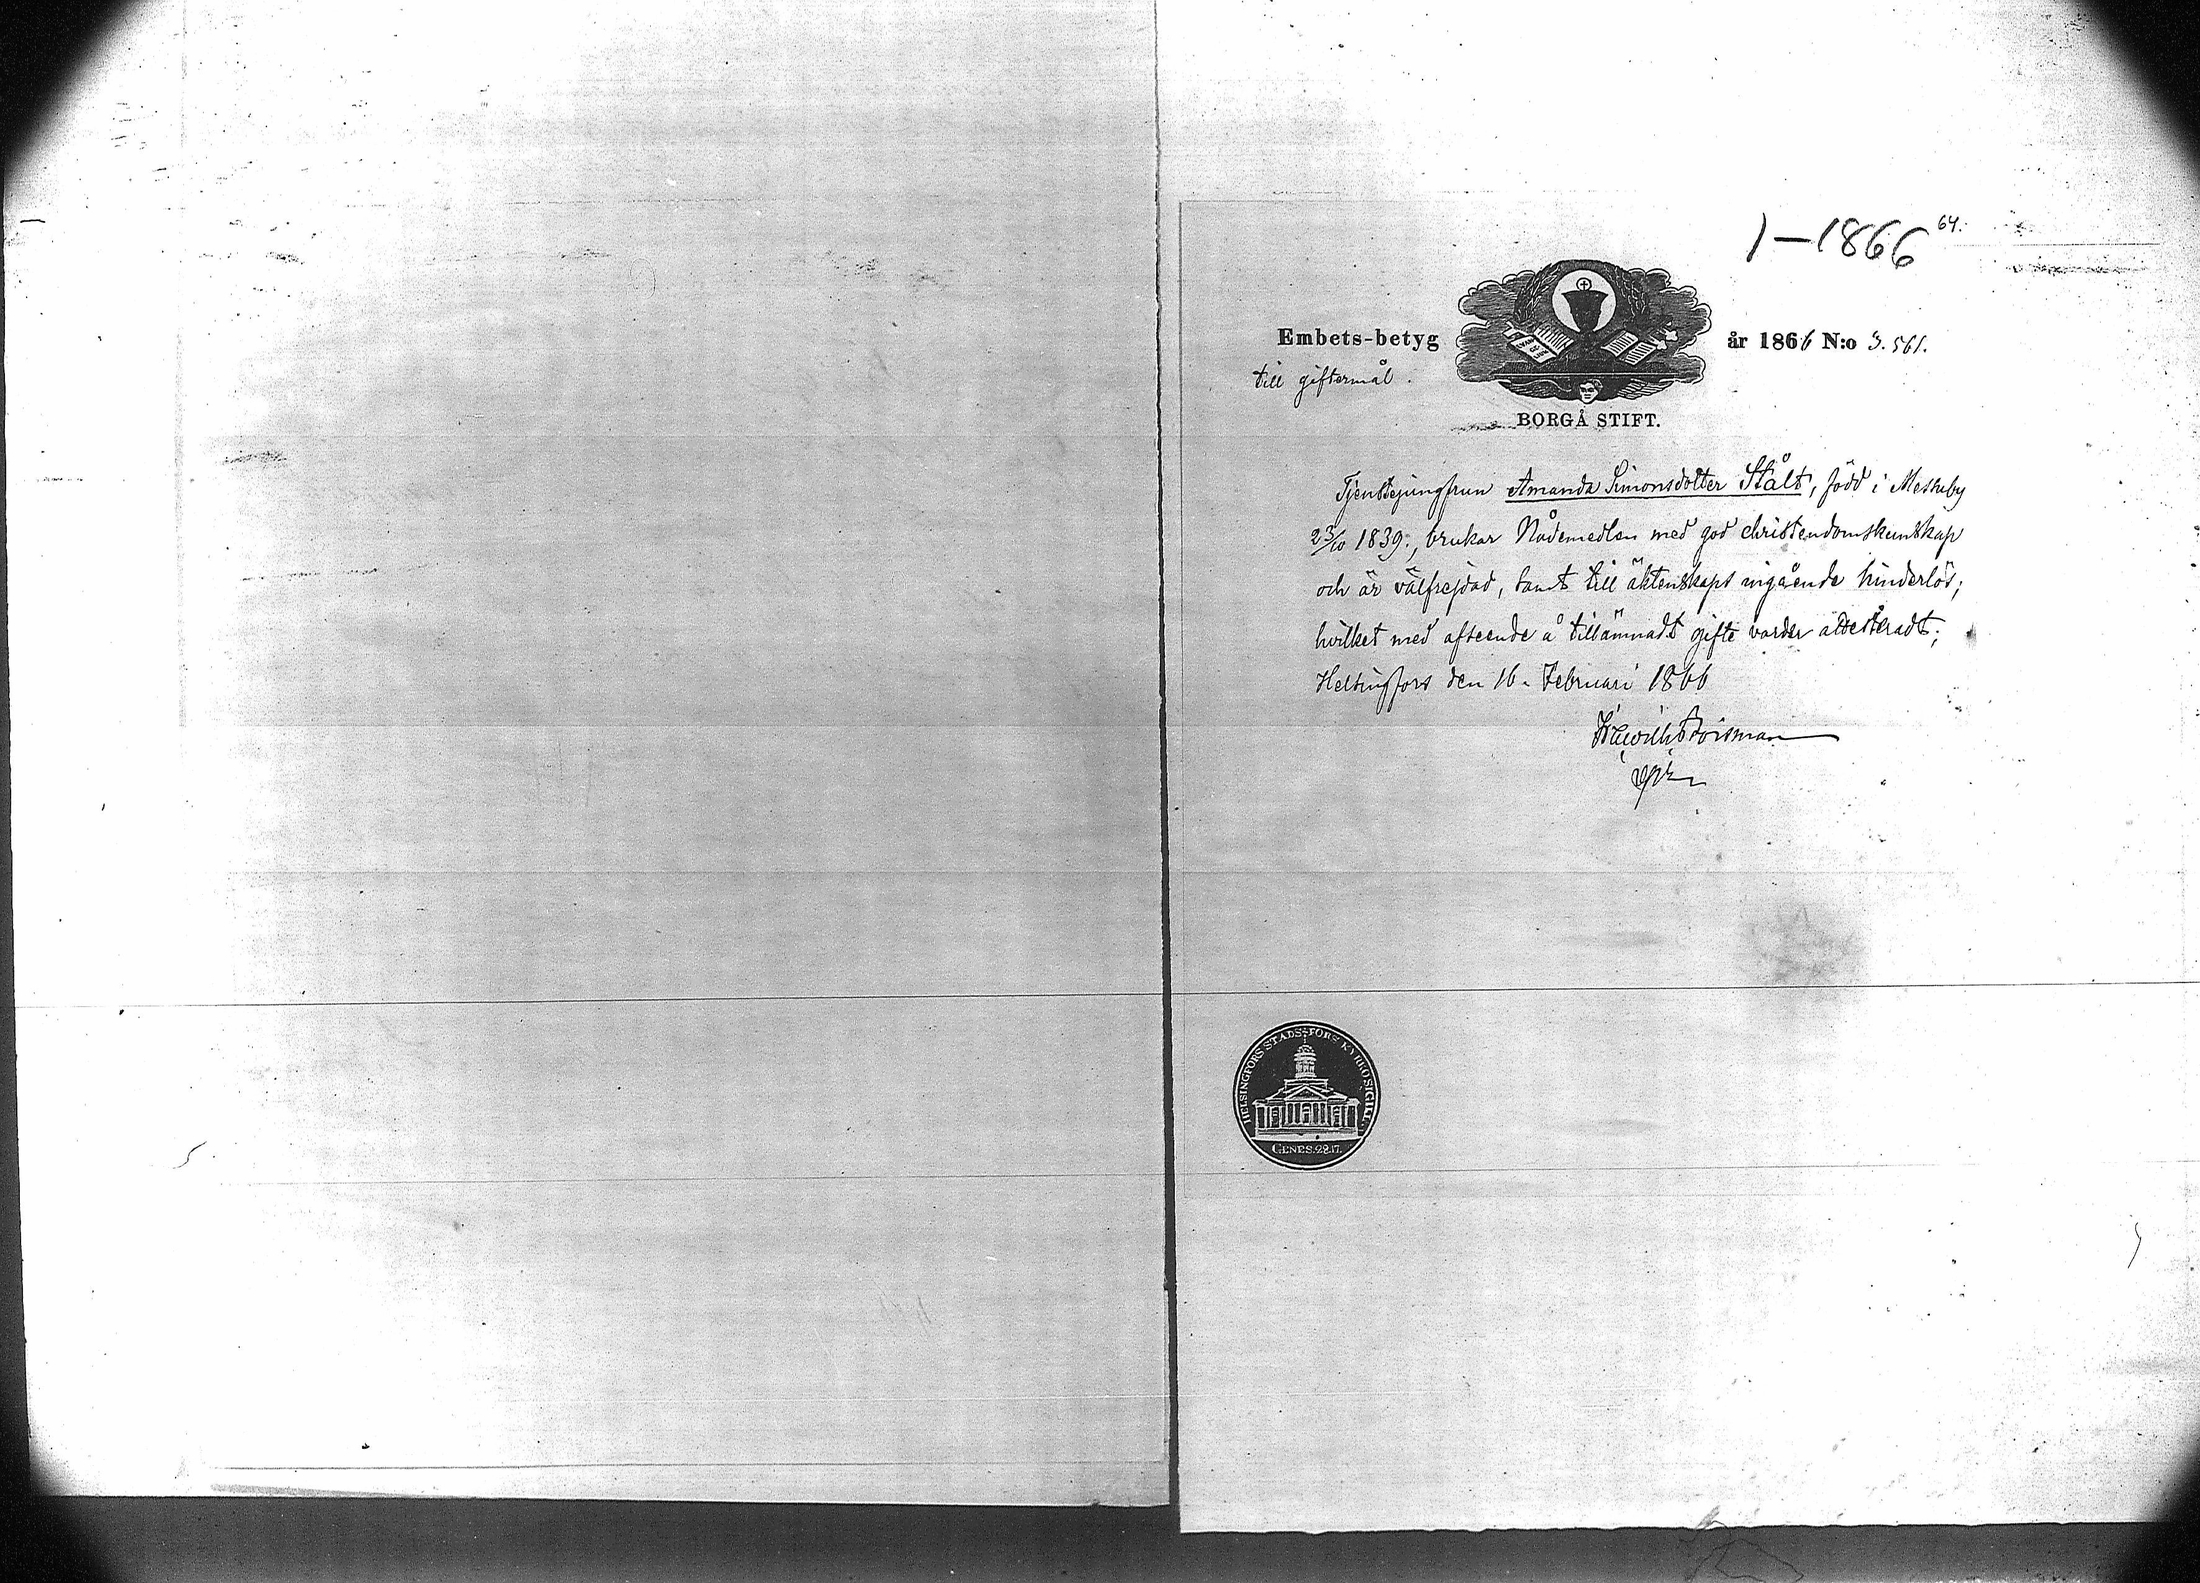 1–1866
64.
Embets-betyg år 1866 N:o 3.561.
till giftermål.
BORGÅ STIFT.
Tjenstejungfrun Amanda Simonsdotter Stålt, född i Messuby
23/10 1839:, brukar Nådemedlen med god christendomskunskap
och är välfrejdad, samt till äktenskaps ingående hinderlös;
hvilket med afseende å tillämnadt gifte varder attesteradt;
Helsingfors den 16. Februari 1866
HELSINGFORS STADS-FÖRS KYRKO SIGILL
GENES. 28.17.